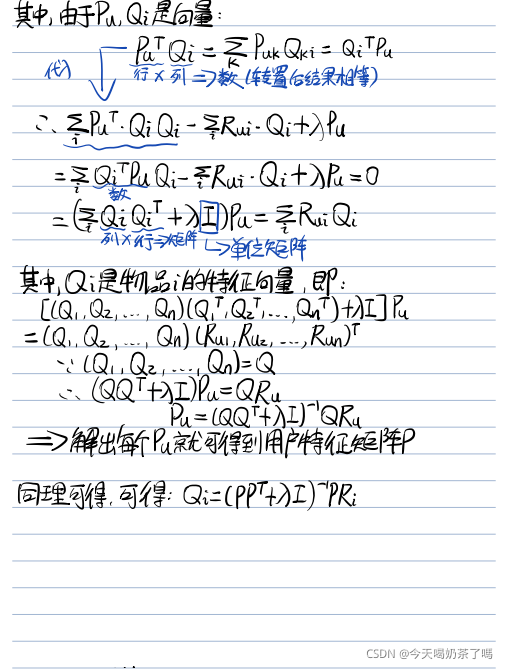 其中,由于Pu,Qi是向量:
PuᵀQi=∑ₖPukQki=QiᵀPu
代入 行×列⇒数(转置后结果相等)
∴ ∑ᵢPuᵀ·QiQi-∑ᵢRui·Qi+λPu
=∑ᵢQiᵀPuQi-∑ᵢRui·Qi+λPu=0
数
=(∑ᵢQiQiᵀ+λI)Pu=∑ᵢRuiQi
列×行⇒矩阵 ↳单位矩阵
其中,Qi是物品i的特征向量,即:
[(Q₁,Q₂,...,Qn)(Q₁ᵀ,Q₂ᵀ,...,Qnᵀ)+λI]Pu
=(Q₁,Q₂,...,Qn)(Ru₁,Ru₂,...,Run)ᵀ
∵(Q₁,Q₂,...,Qn)=Q
∴(QQᵀ+λI)Pu=QRu
Pu=(QQᵀ+λI)⁻¹QRu
⇒解出每个Pu就可得到用户特征矩阵P
同理可得,可得:Qi=(PPᵀ+λI)⁻¹PRi
CSDN @今天喝奶茶了嗎